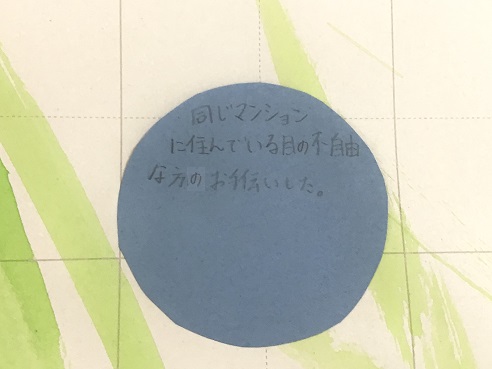 同じマンション
に住んでいる目の不自由
な方のお手伝いした。